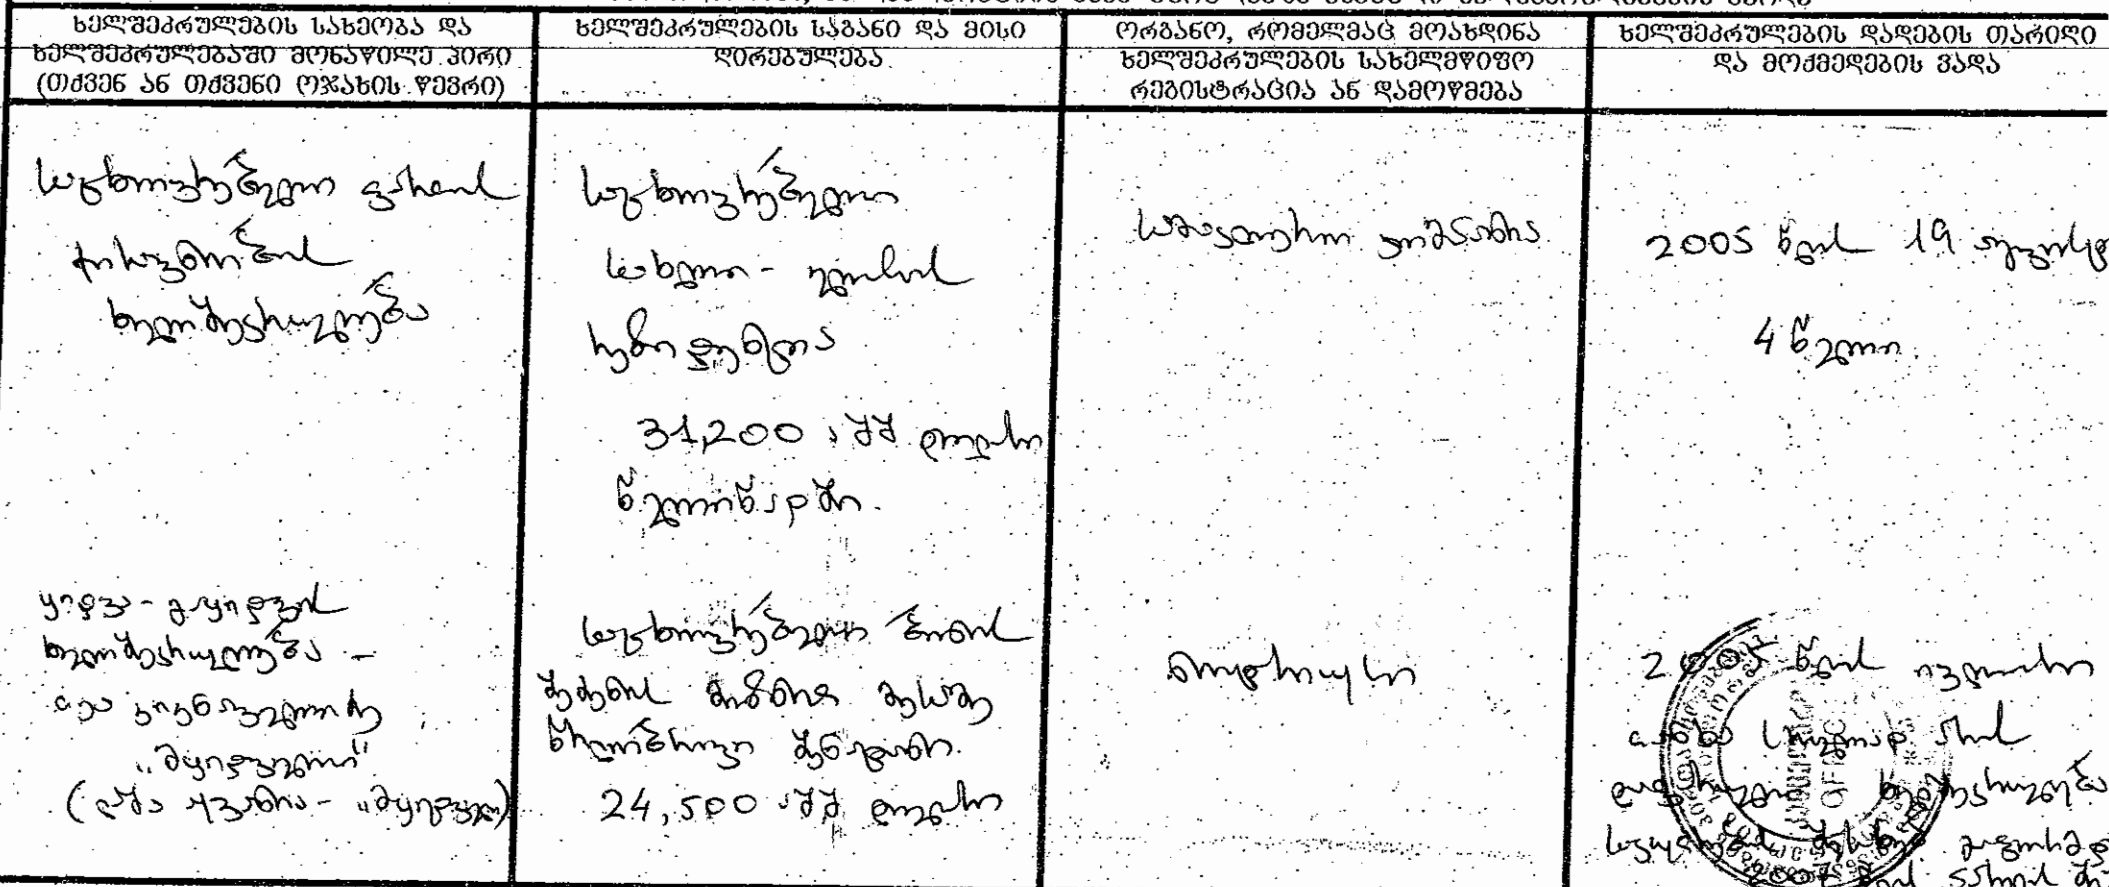 ხელშეკრულების სახეობა და
ხელშეკრულებაში მონაწილე პირი
(თქვენ ან თქვენი ოჯახის წევრი)
ხელშეკრულების საგანი და მისი
ღირებულება
ორგანო, რომელმაც მოახდინა
ხელშეკრულების სახელმწიფო
რეგისტრაცია ან დამოწმება
ხელშეკრულების დადების თარიღი
და მოქმედების ვადა
საცხოვრებელი ფართის
ქირავნობის
ხელშეკრულება
საცხოვრებელი
სახლი - ელისის
რეზიდენცია
31,200 აშშ დოლარი
წელიწადში.
სამაკლერო კომპანია
2005 წლის 19 აგვისტ
4 წელი
ყიდვა - გაყიდვის
ხელშეკრულება -
"მყიდველი"
"მყიდველი")
საცხოვრებელი ბინის
შეძენის მიზნით მესამე
24,500 აშშ დოლარი
ნოტარიუსი
2005 წლის ივლისი
თანხა სრულად არის
დაფარული ხელშეკრულება
2007 წლის